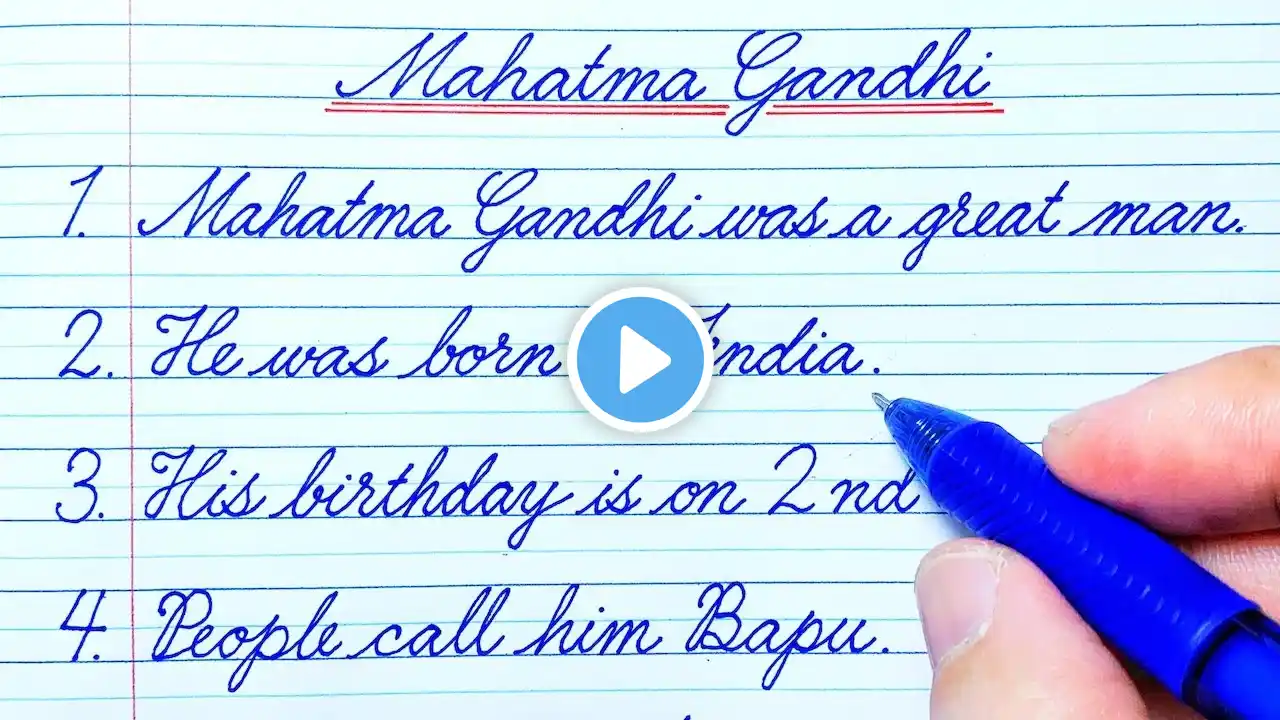 Mahatma Gandhi
1. Mahatma Gandhi was a great man.
2. He was born India.
3. His birthday is on 2nd
4. People call him Bapu.